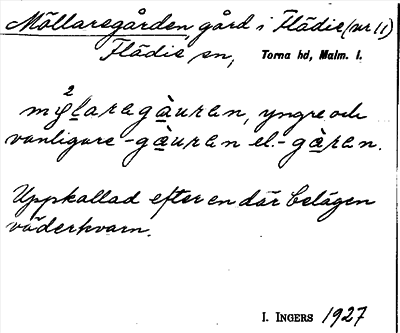 Möllaregården, gård i Flädie (nr 11)
Flädie sn, Torna hd, Malm. l.
yngre och
vanligare -gæuren el. -gæren.
Uppkallad efter en där belägen
väderkvarn.
I. INGERS 1927